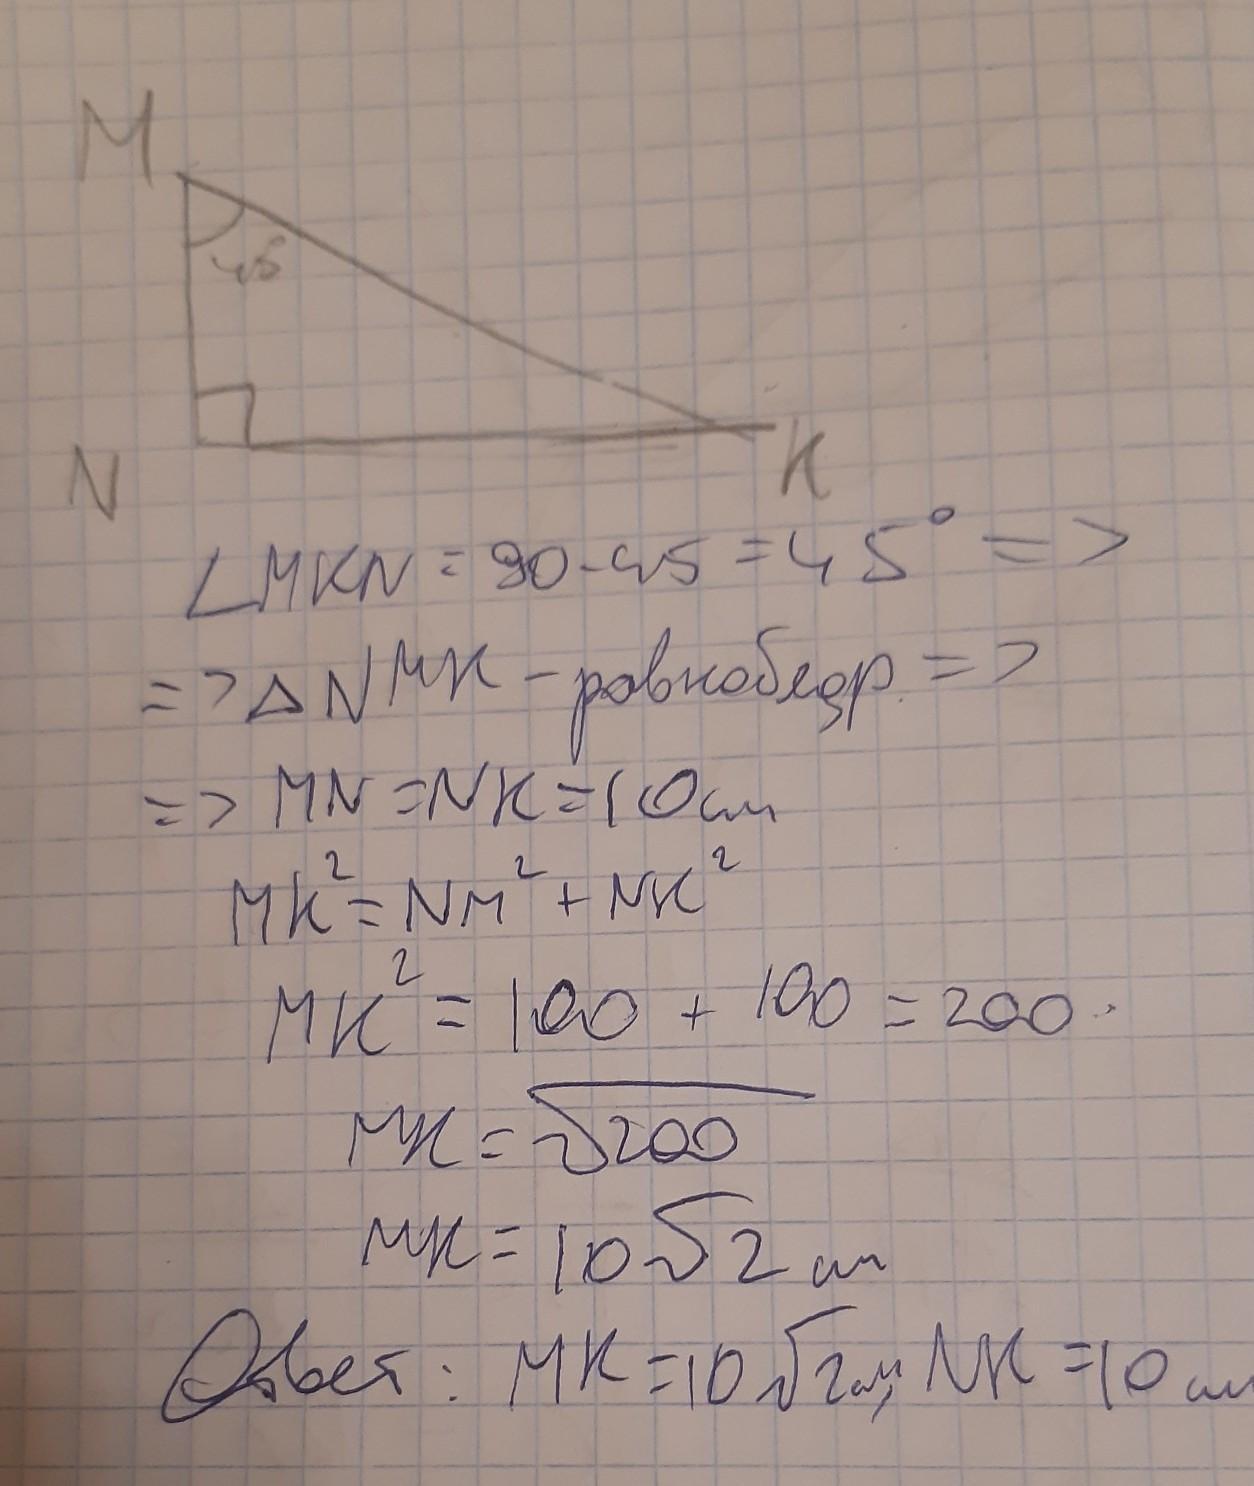 M
45
N
K
∠MKN = 90-45 = 45° =>
=> △NMK - равнобедр. =>
=> MN = NK = 10 см
MK² = NM² + NK²
MK² = 100 + 100 = 200.
MK = √200
MK = 10√2 см
Ответ: MK = 10√2 см, NK = 10 см